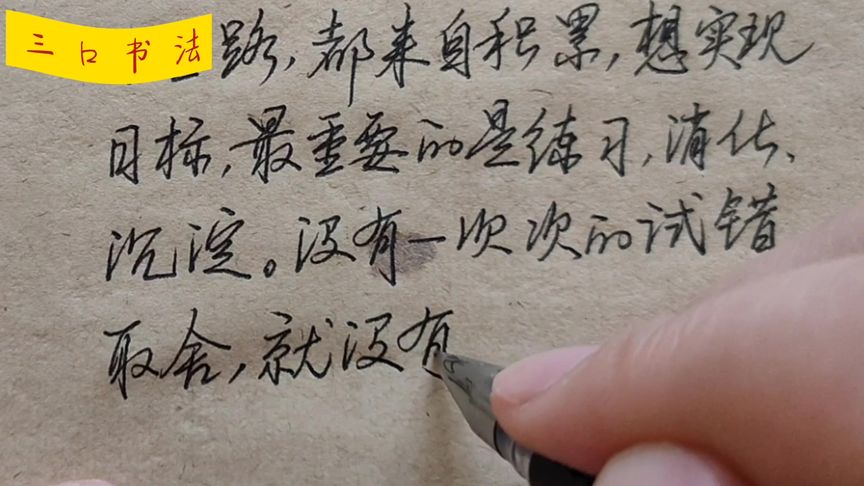 三口书法
路，都来自积累，想实现
目标，最重要的是练习，消化、
沉淀。没有一次次的试错
取舍，就没有